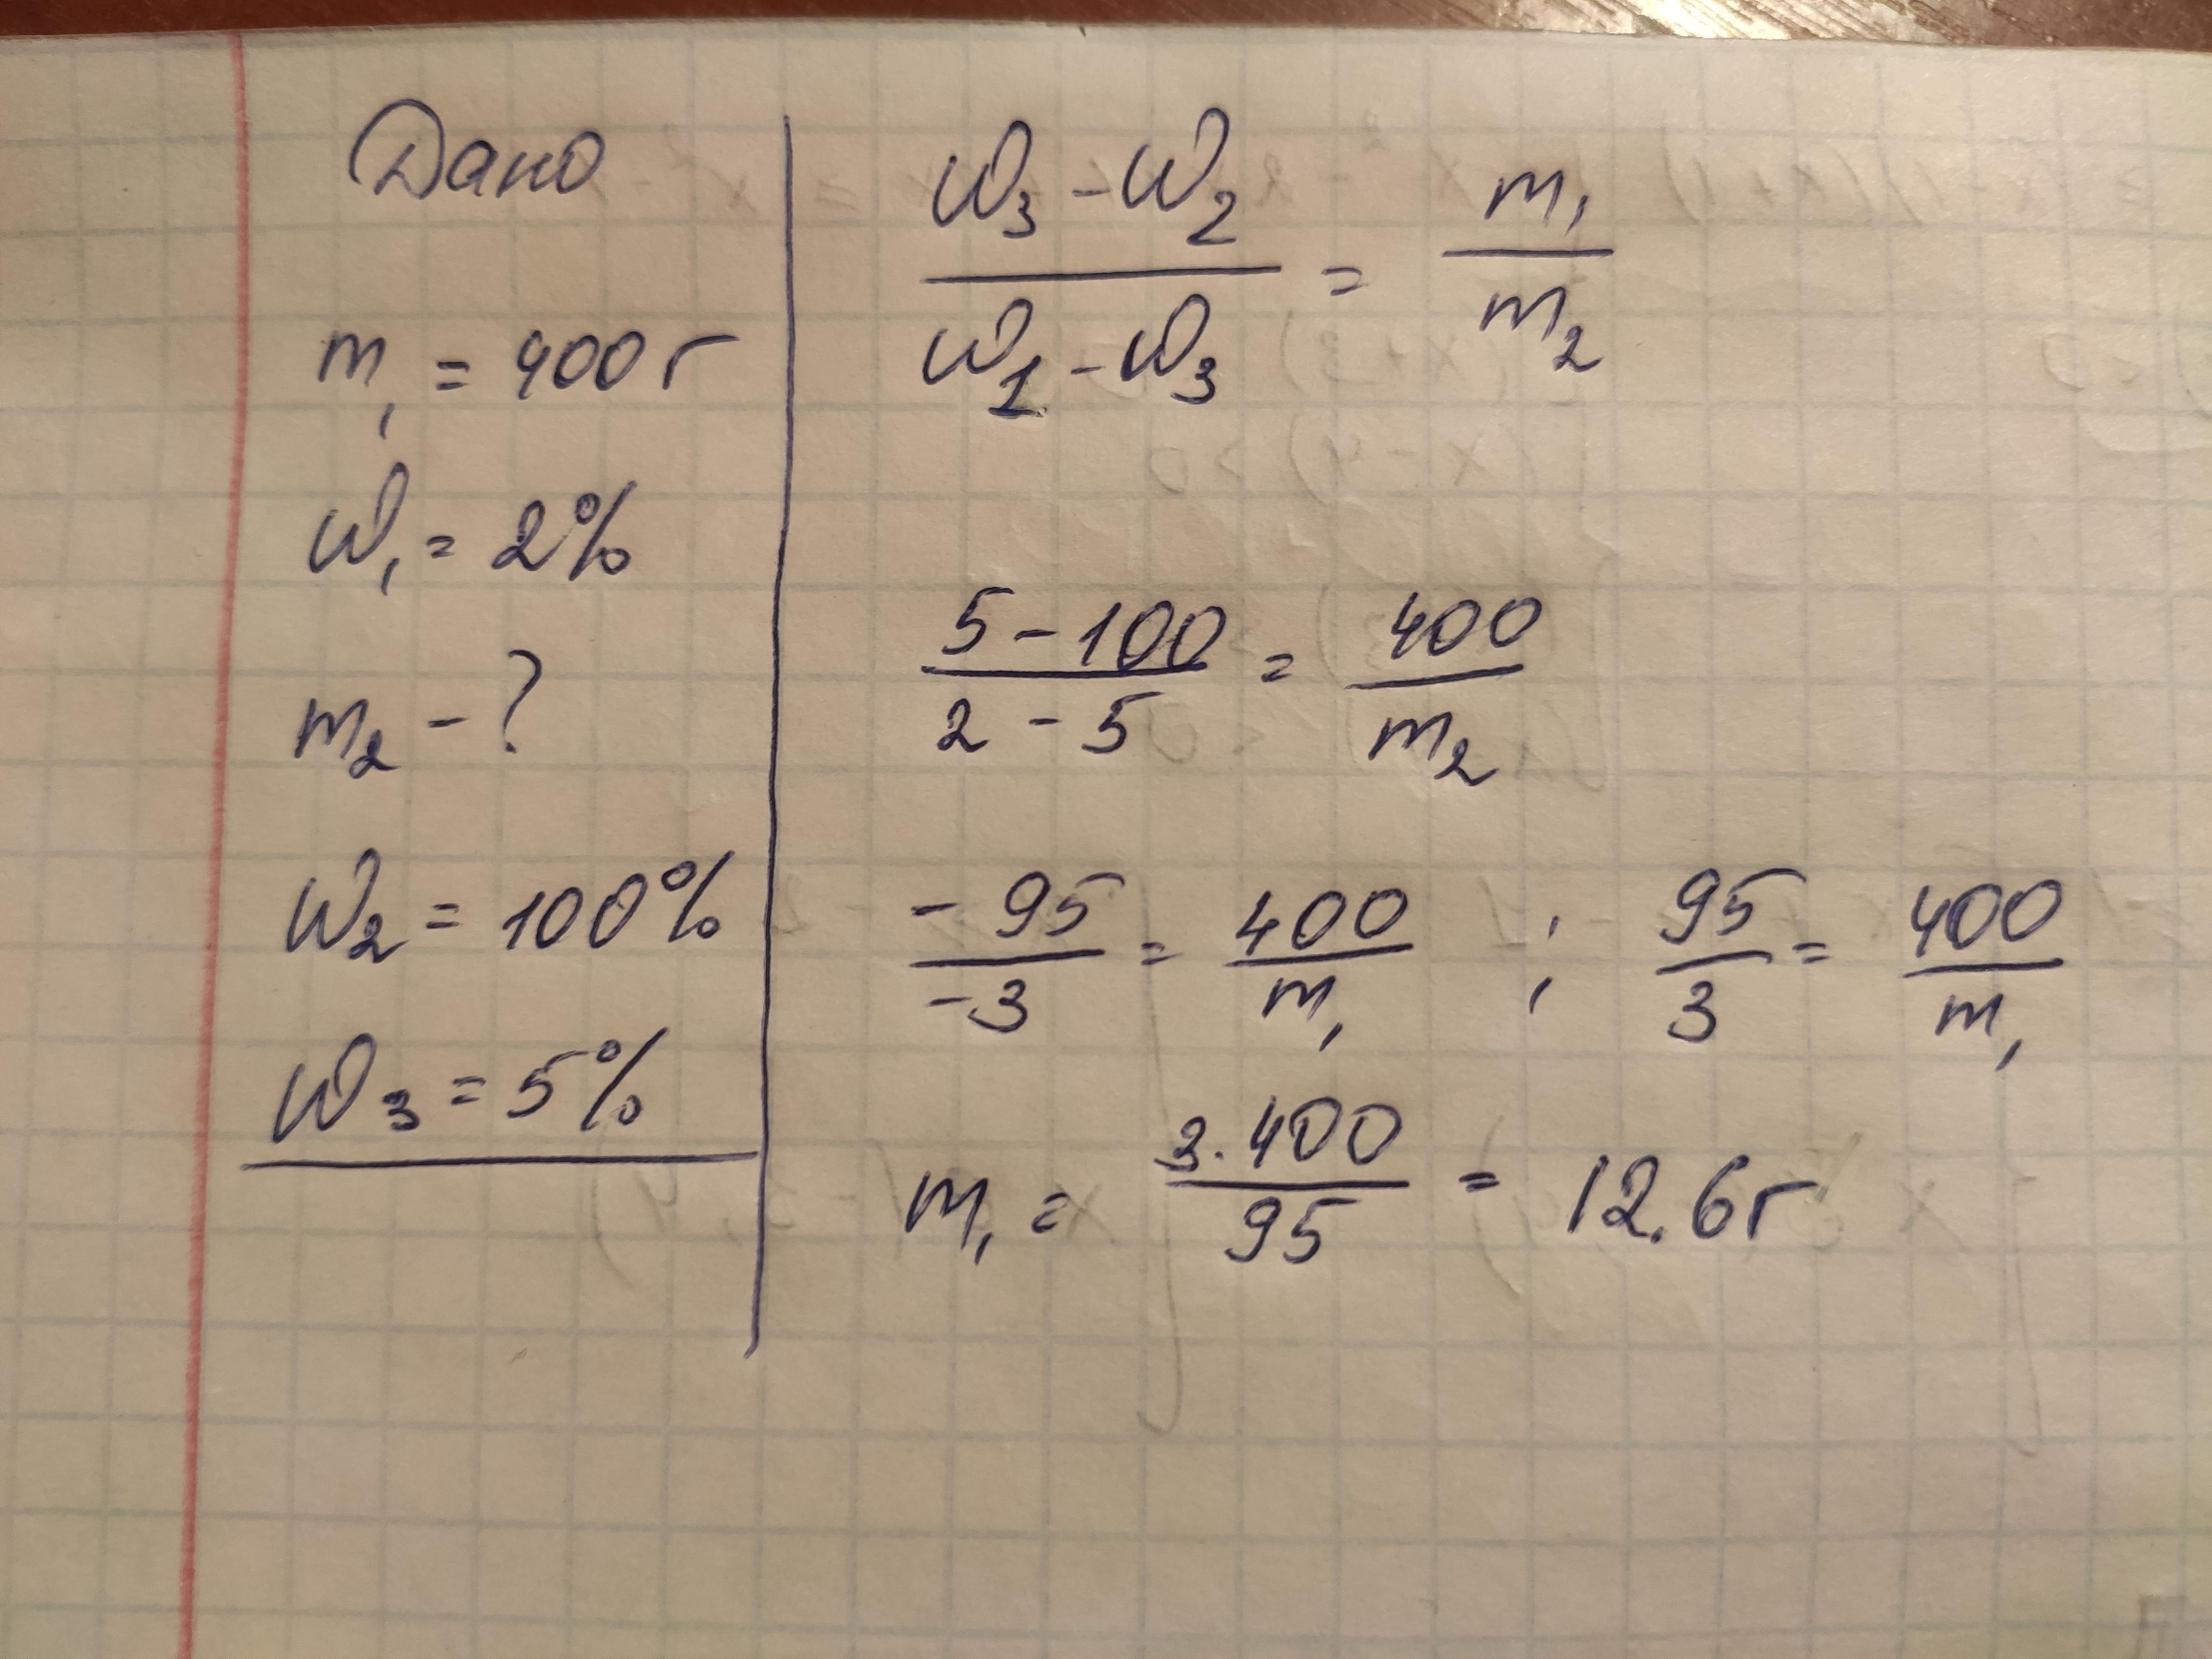 Дано
m₁ = 400 г
ω₁ = 2%
m₂ - ?
ω₂ = 100%
ω₃ = 5%
(ω₃ - ω₂)/(ω₁ - ω₃) = m₁/m₂
(5 - 100)/(2 - 5) = 400/m₂
-95/-3 = 400/m₁ ; 95/3 = 400/m₁
m₁ = 3·400/95 = 12.6 г